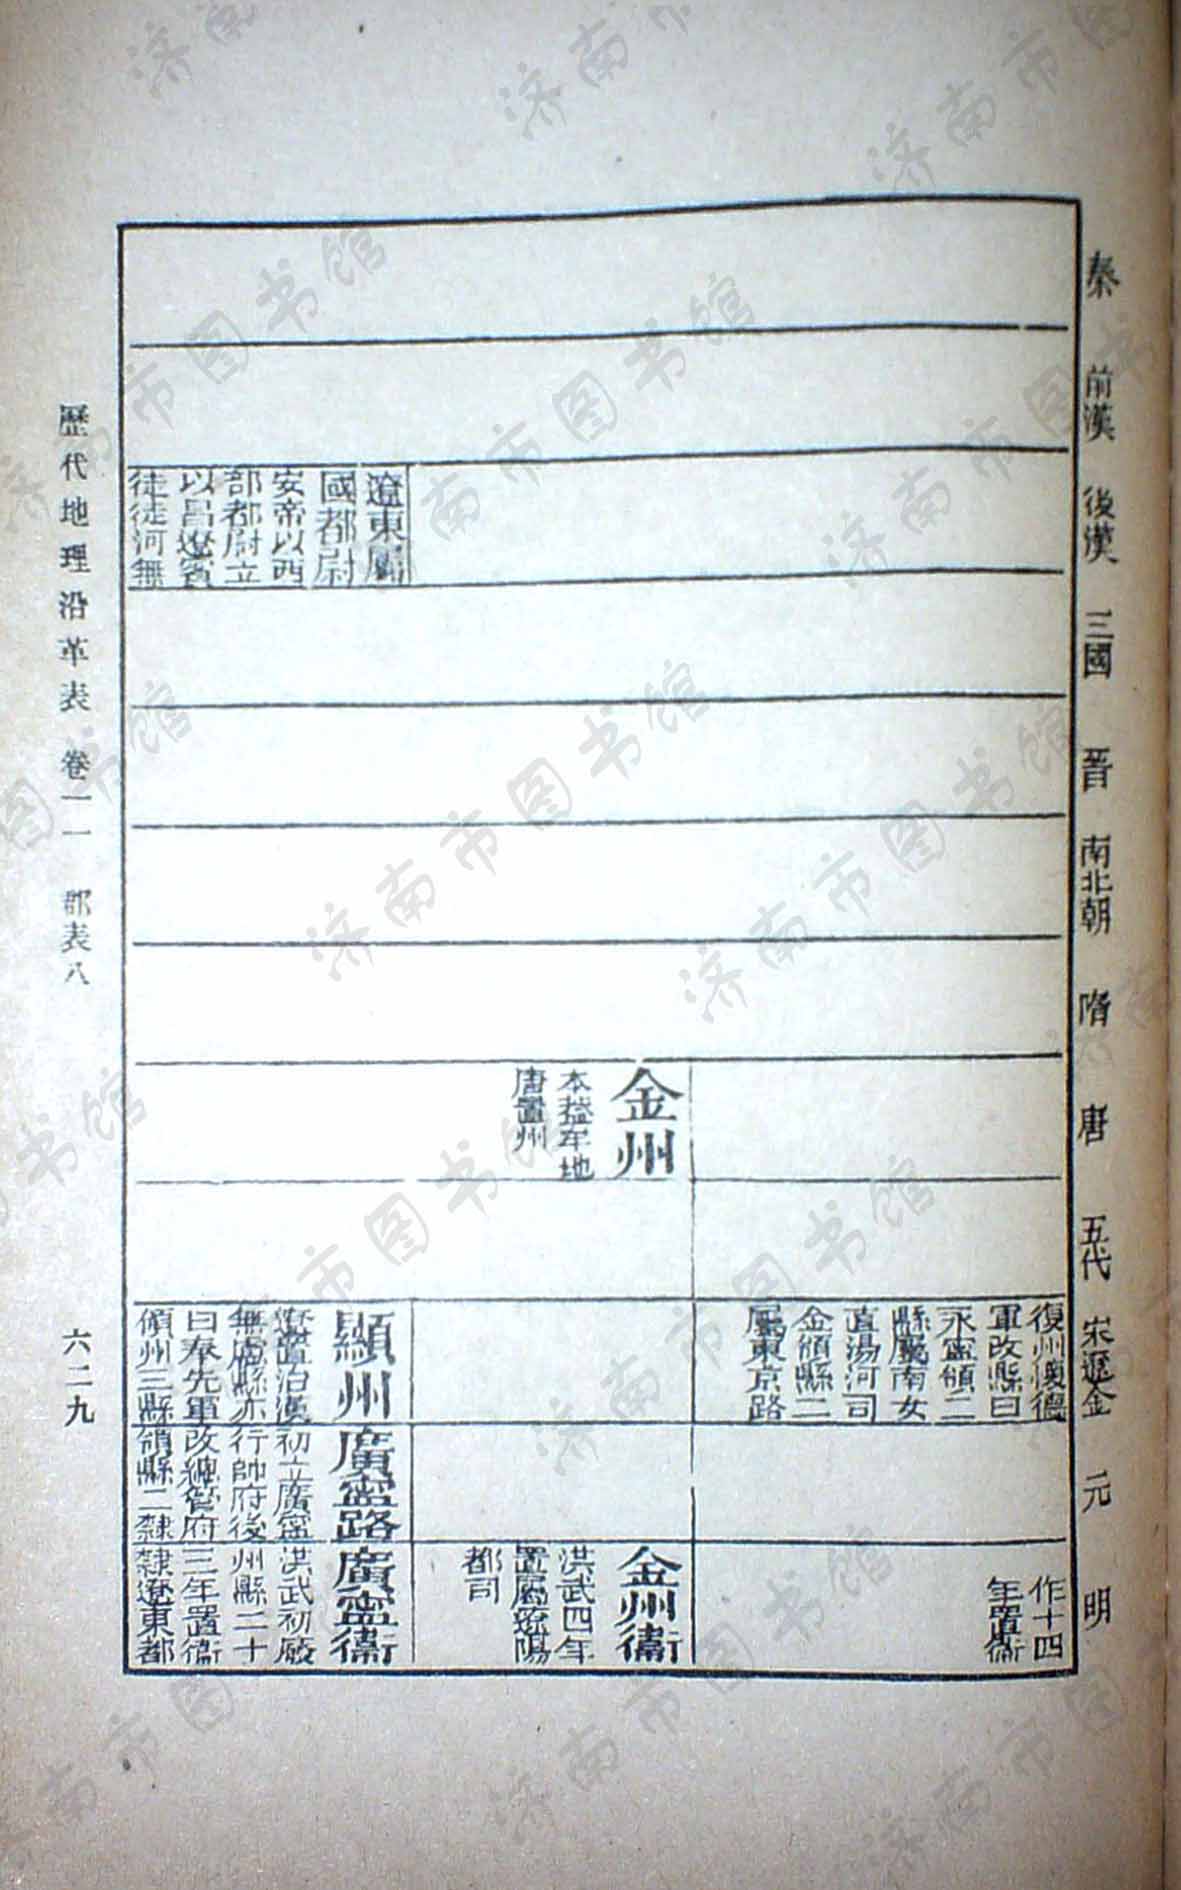 秦
前漢
後漢
三國
晉
南北朝
隋
唐
五代
宋遼金
元
明
遼東屬
國都尉
安帝以西
部都尉立
以昌遼賓
徒徒河無
金州
本蓋牟地
唐置州
復州懷德
軍改縣曰
永寧領二
縣屬南女
直湯河司
金領縣二
屬東京路
顯州
遼置治漢
無慮縣亦
曰奉先軍
傾州三縣
廣寧路
初立廣寧
行帥府後
改總管府
領縣二隸
作十四
年置衞
金州衞
洪武四年
置屬遼陽
都司
廣寧衞
洪武初廢
州縣二十
三年置衞
隸遼東都
歷代地理沿革表 卷一一 郡表八
六二九
济南市图书馆